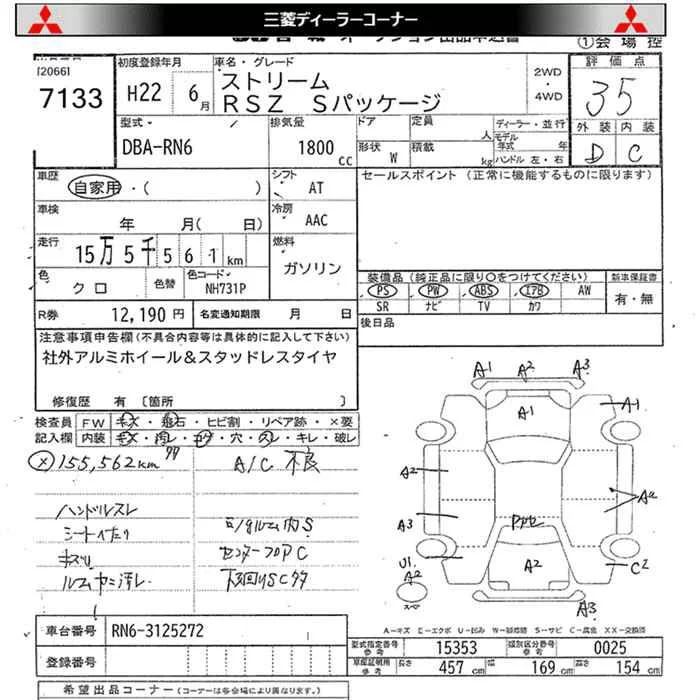 三菱ディーラーコーナー
①会場控
(2066)
7133
初度登録年月
H22 6月
車名・グレード
ストリーム
RSZ Sパッケージ
2WD
4WD
評価点
35
外装 内装
D C
型式
DBA-RN6
排気量
1800cc
ドア
形状 W
定員 人
積載 kg
ディーラー・並行
モデル年式 年
ハンドル 左・右
車歴
自家用・( )
シフト
AT
車検
年 月( 日)
冷房
AAC
走行
15万5千561km
燃料
ガソリン
色
クロ
色替
色コード
NH731P
セールスポイント(正常に機能するものに限ります)
装備品(純正品に限り○をつけてください)
PS PW ABS エアB AW
SR ナビ TV カワ
新車保証書
有・無
R券 12,190円
名変通知期限 月 日
後日品
注意事項申告欄(不具合内容等は具体的に記入して下さい)
社外アルミホイール&スタッドレスタイヤ
修復歴 有〔箇所 〕
検査員記入欄
FW キズ・飛石・ヒビ割・リペア跡・×要
内装 キズ・汚レ・コゲ・穴・スレ・キレ・破レ
× 155,562km
A/C 不良
ハンドルスレ
シートヘタリ
キズリ
ルームヤニ汚レ
A1 A2 A3
A1
A1
A2
A3
A2
U1
A2
C2
A3
スペア
A-キズ E-エクボ U-凹み W-補修跡 S-サビ C-腐食 XX-交換済
車台番号 RN6-3125272
登録番号
型式指定番号 参考 15353
類別区分番号 参考 0025
車庫証明用 参考 長さ 457cm 幅 169cm 高さ 154cm
希望出品コーナー(コーナーは各会場により異なります。)